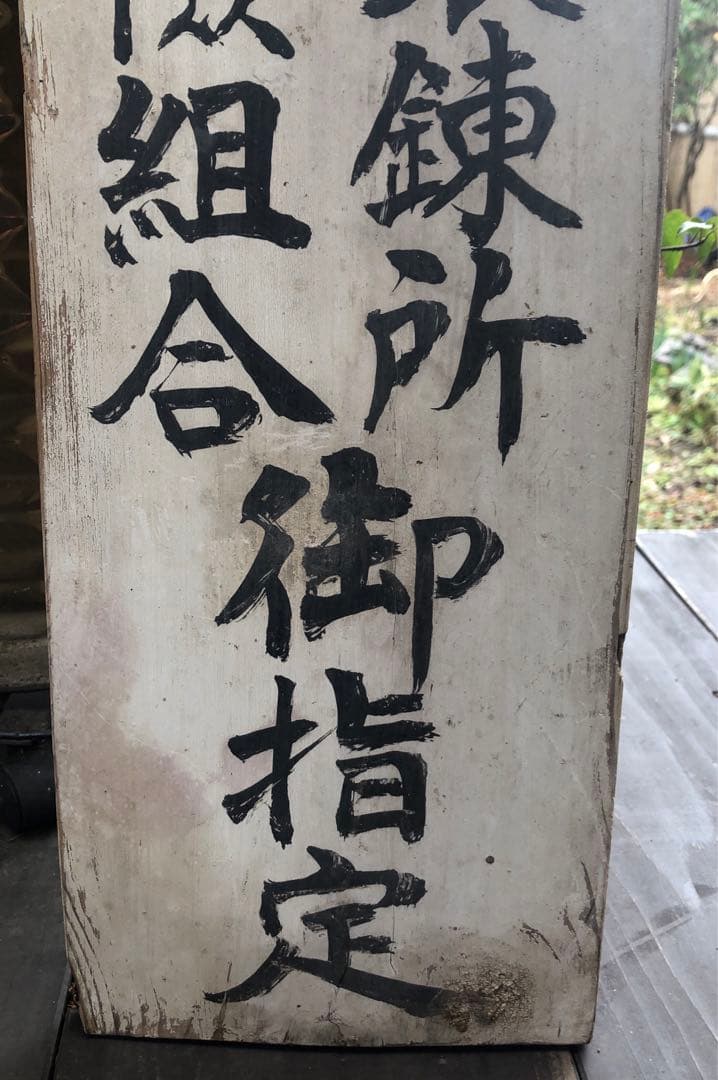 錬所
組合
御指定